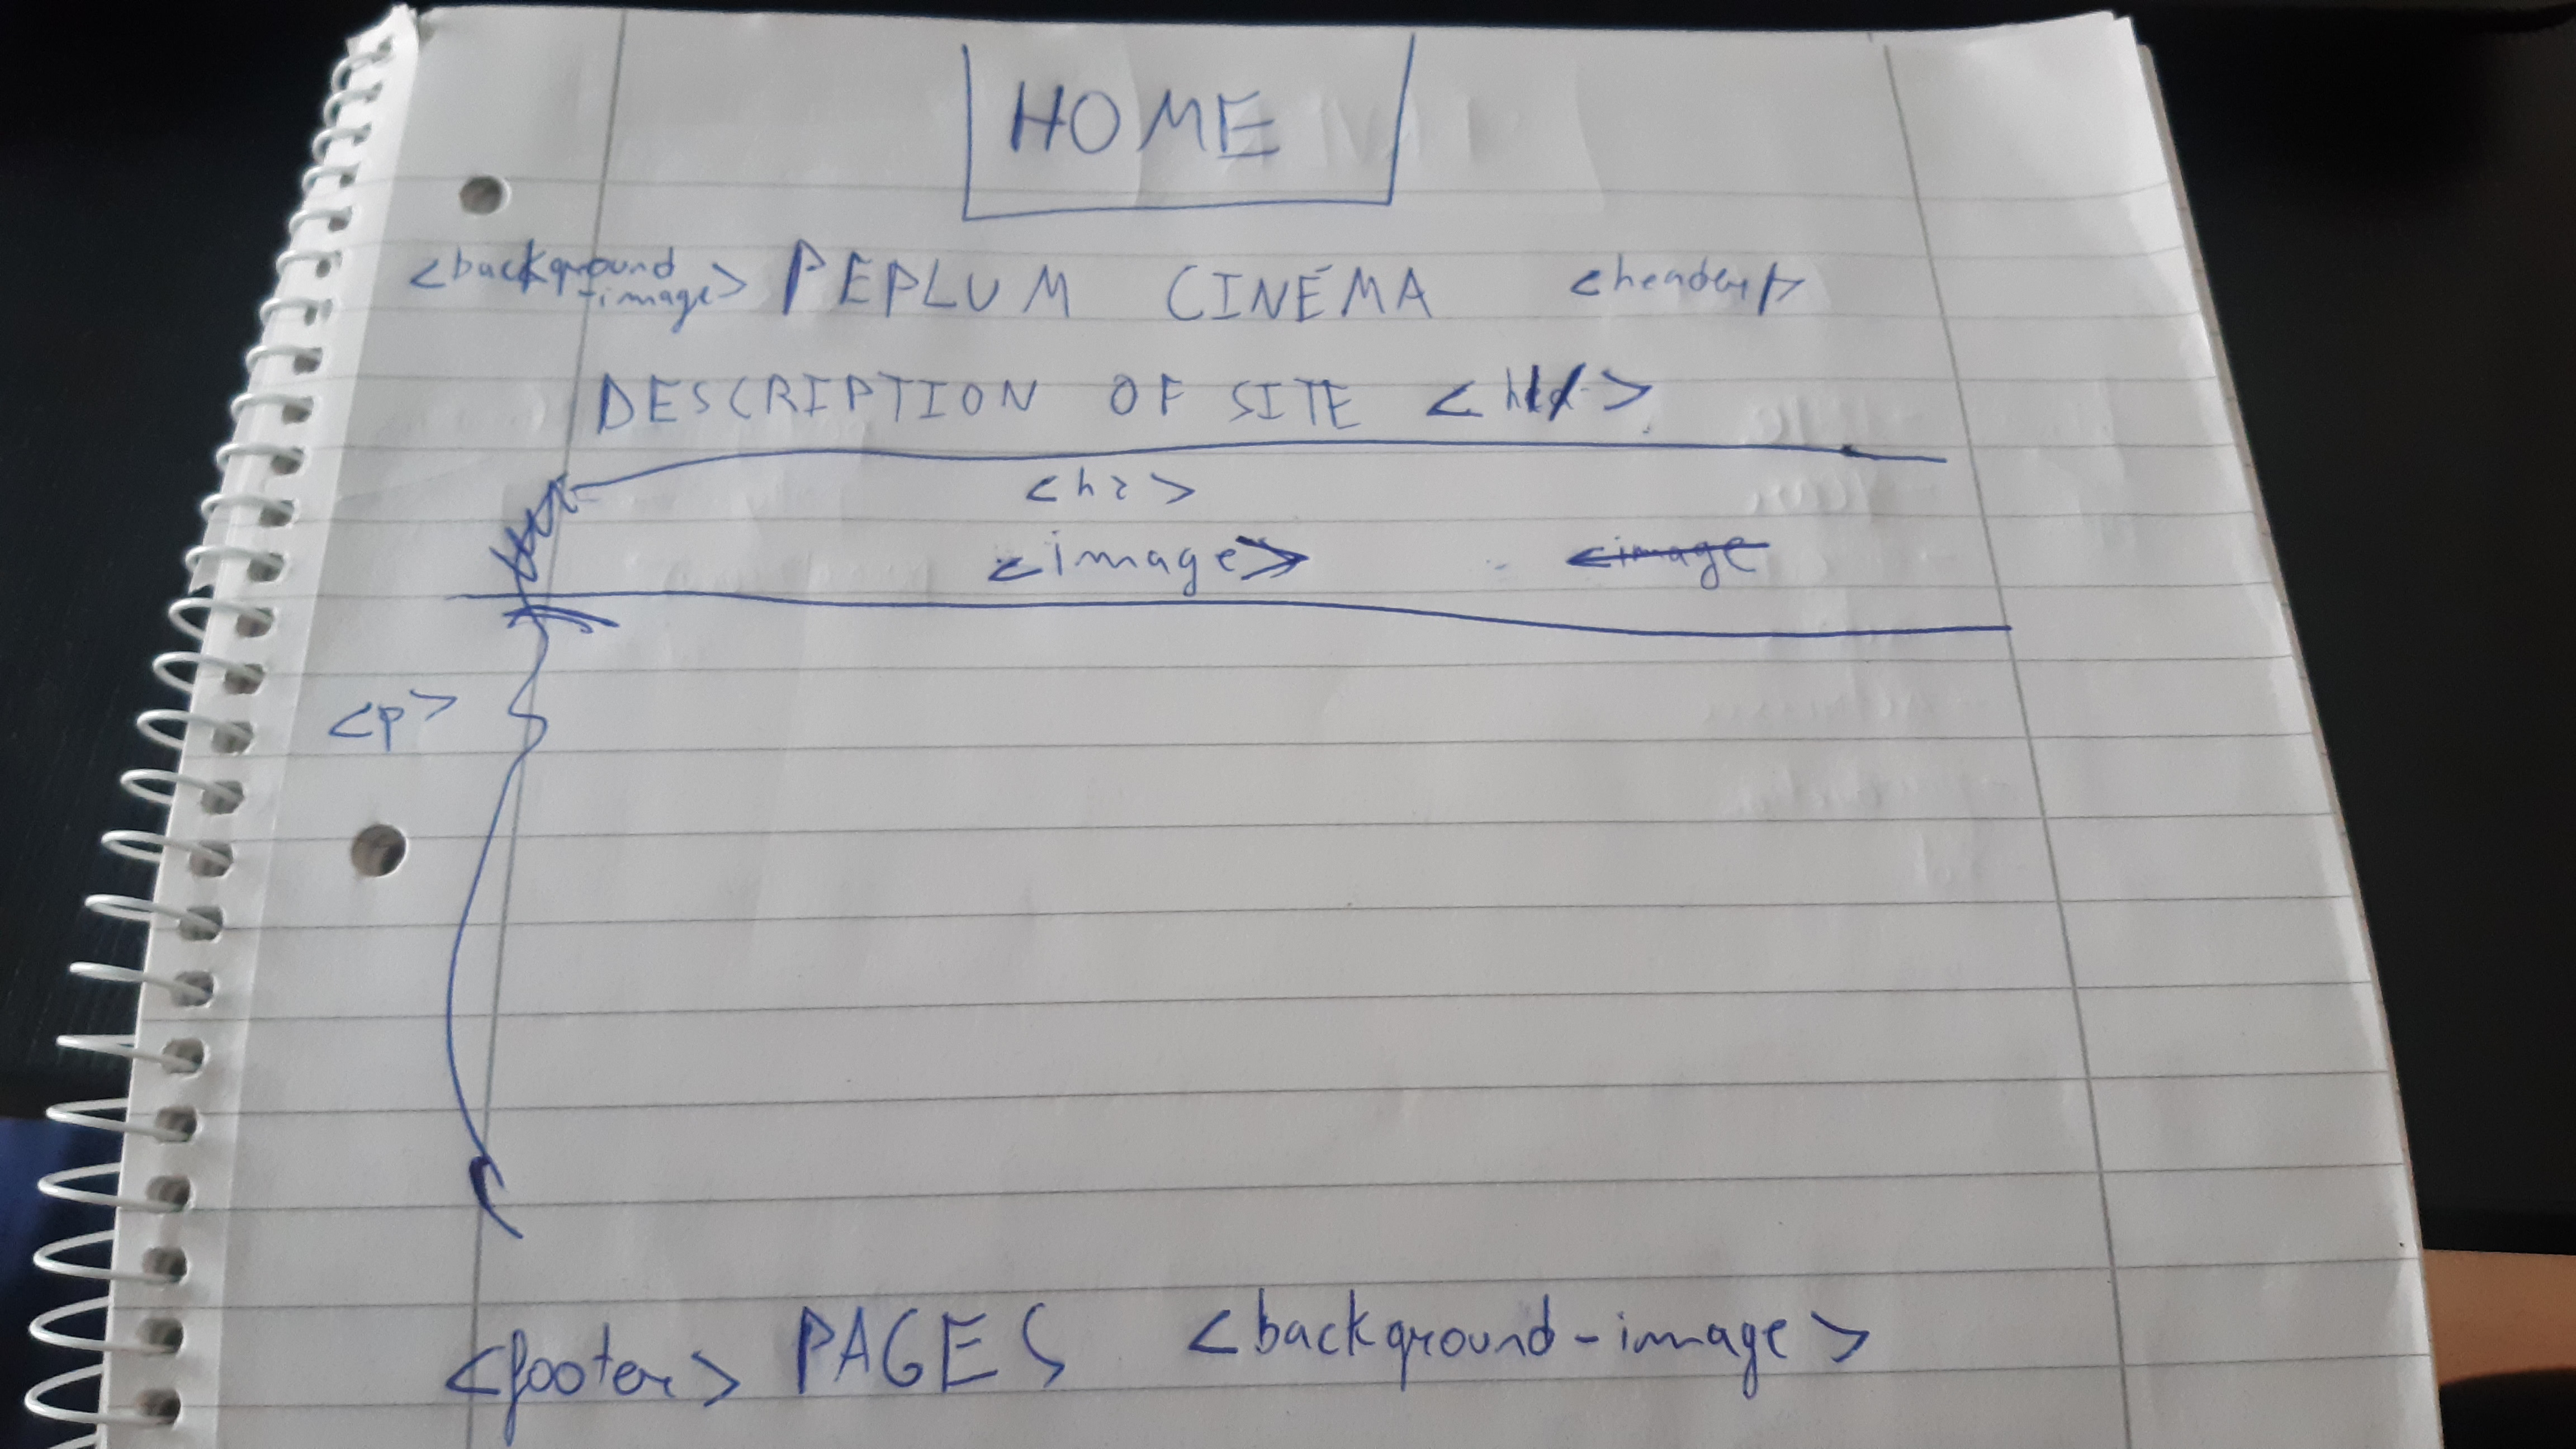 HOME
<background
-image> PEPLUM CINÉMA <header>
DESCRIPTION OF SITE
<h2>
<image> <image
<p>
<footer> PAGES <background-image>